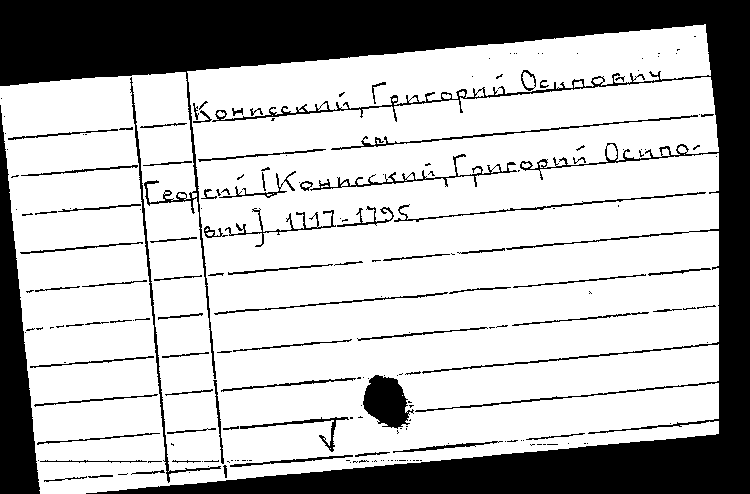 Конисский, Григорий Осипович
см.
Георгий [Конисский, Григорий Осипо-
вич], 1717-1795.